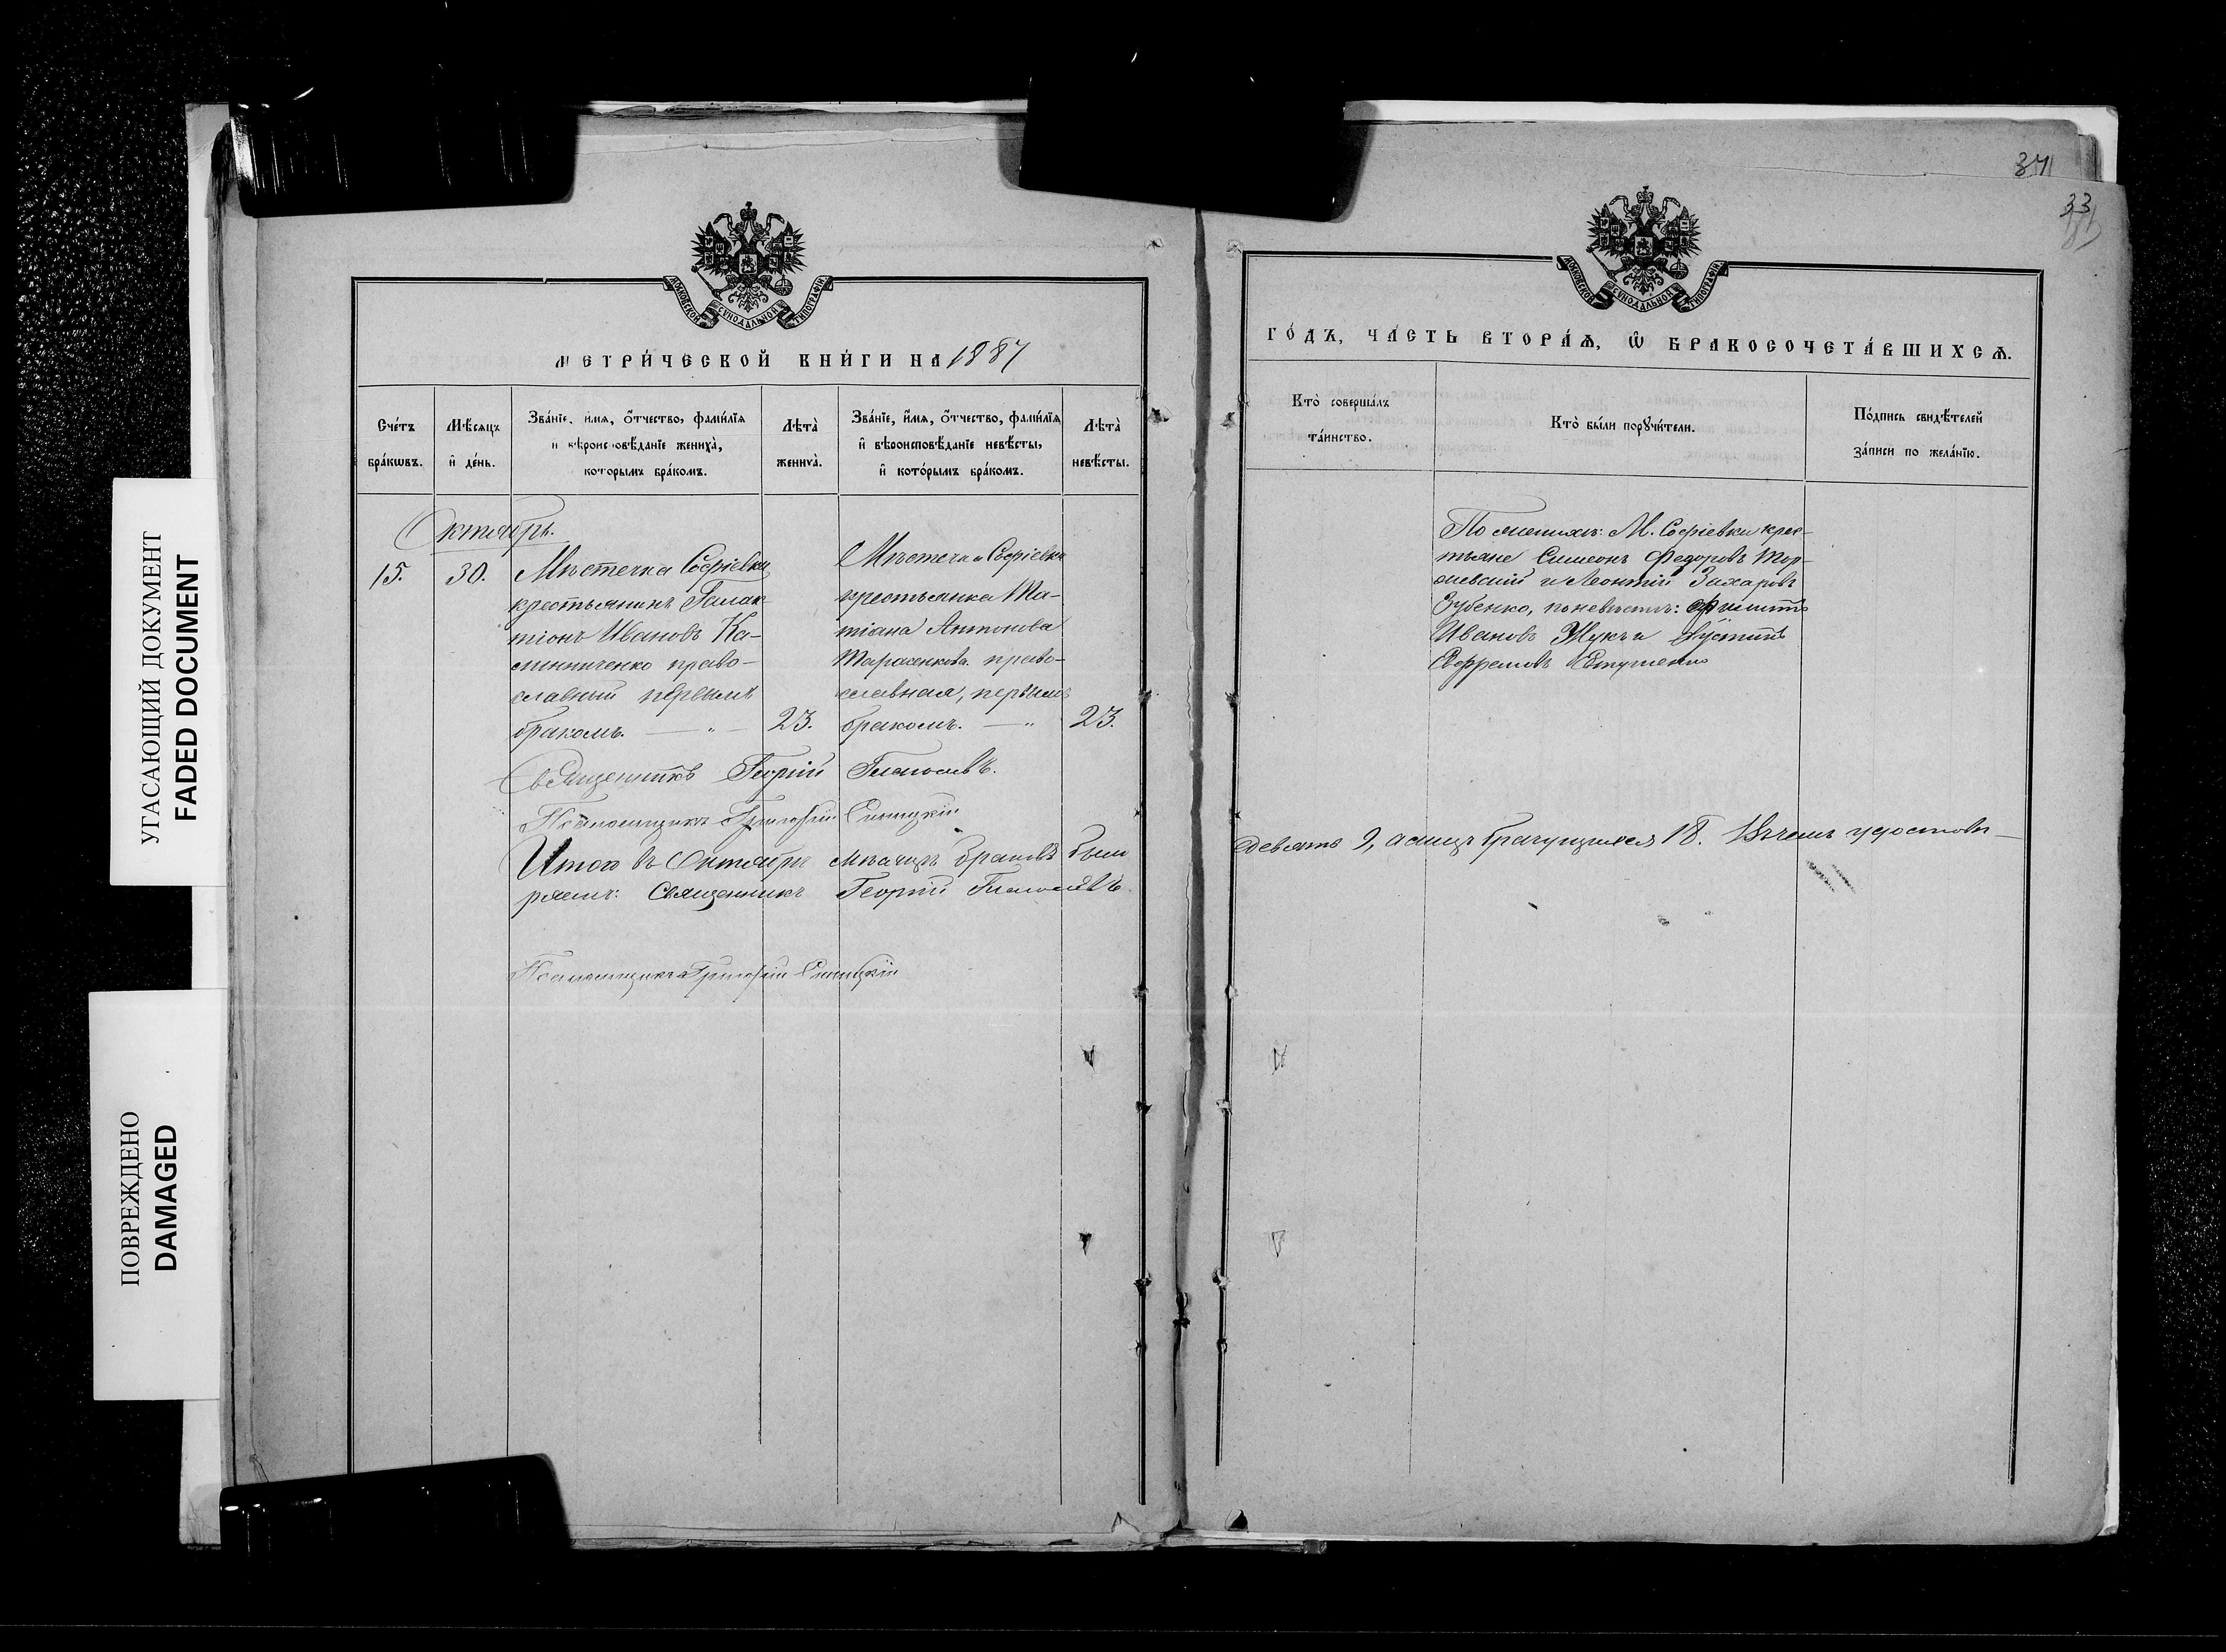 УГАСАЮЩИЙ ДОКУМЕНТ
FADED DOCUMENT
ПОВРЕЖДЕНО
DAMAGED
МОСКОВСКОЙ СѴНОДАЛЬНОЙ ТИПОГРАФІИ
МЕТРИ́ЧЕСКОЙ КНИ́ГИ НА 1887
Сче́тъ бра́кѡвъ.
Мѣ́сяцъ и҆ де́нь.
Зва́нїе, и҆́мя, ѻ҆́тчество, фами́лїя
и вѣроисповѣ́данїе жениха̀,
которымъ бра́комъ.
Лѣта̀ жениха̀.
Зва́нїе, и҆́мя, ѻ҆́тчество, фами́лїя
и҆ вѣроисповѣ́данїе невѣ́сты,
и҆ кото́рымъ бра́комъ.
Лѣта̀ невѣ́сты.
Октябрь.
15. 30.
Мѣстечка Софіевки
крестьянинъ Галак-
тіонъ Ивановъ Ка-
линниченко право-
славный первымъ
бракомъ. — „ — 23.
Мѣстечка Софіевки
крестьянка Та-
тіана Антонова
Тарасенкова право-
славная, первымъ
бракомъ. — „ 23.
Священникъ Георгій
Псаломщикъ Григорій Синицкій
Итого въ Октябрѣ мѣсяцѣ браковъ было
ряемъ: Священникъ Георгій
Псаломщикъ Григорій Синицкій
34
33
МОСКОВСКОЙ СѴНОДАЛЬНОЙ ТИПОГРАФІИ
ГО́ДЪ, ЧА́СТЬ ВТОРА́Ѧ, Ѽ БРАКОСОЧЕТА́ВШИХСѦ.
Кто̀ соверша́лъ
та́инство.
Кто̀ бы́ли порꙋчи́тели.
По́дпись свидѣ́телей
за́писи по жела́нїю.
По женихѣ: М. Софіевки крес-
тьяне Симеонъ Федоровъ
и Леонтій Захаровъ
Зубенко, по невѣстѣ: Филиппъ
Ивановъ Жукъ и Іустинъ
Ефремовъ
девять 9, а лицъ брачущихся 18. Въ чемъ удостовѣ-